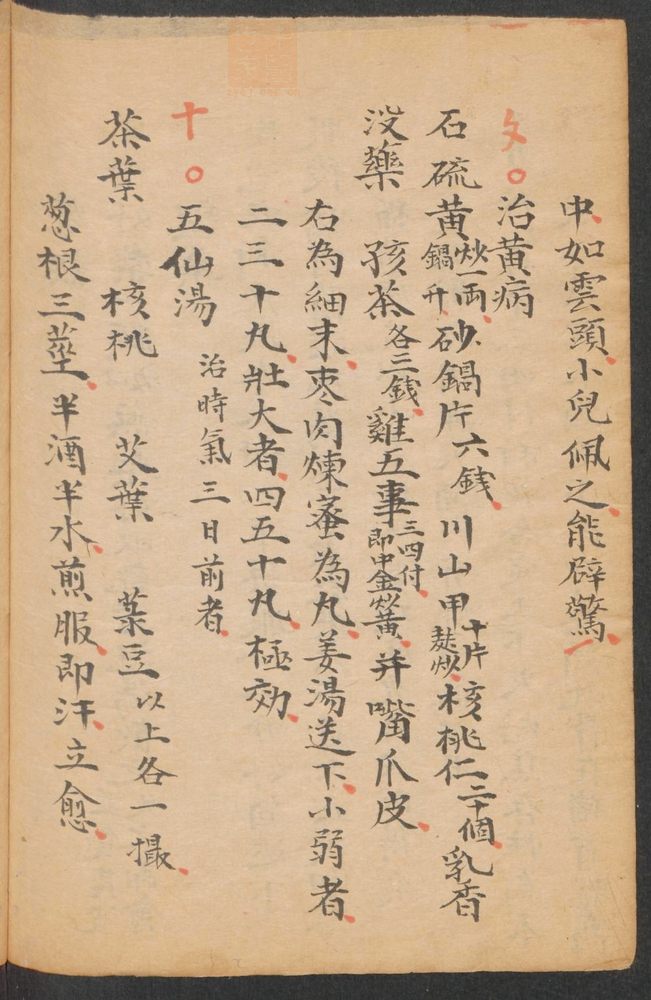 中如雲頭小兒佩之能辟驚
〇治黄病
石硫黄炒一両鍋升砂鍋片六銭川山甲十片麩炒核桃仁二十個乳香
没藥孩茶各三銭雞五事三四付即中金炒黄并嘴爪皮
右為細末枣肉煉蜜為丸姜湯送下小弱者
二三十丸壯大者四五十丸極効
十〇五仙湯治時氣三日前者
茶葉核桃艾葉菉豆以上各一撮
葱根三莖半酒半水煎服即汗立愈